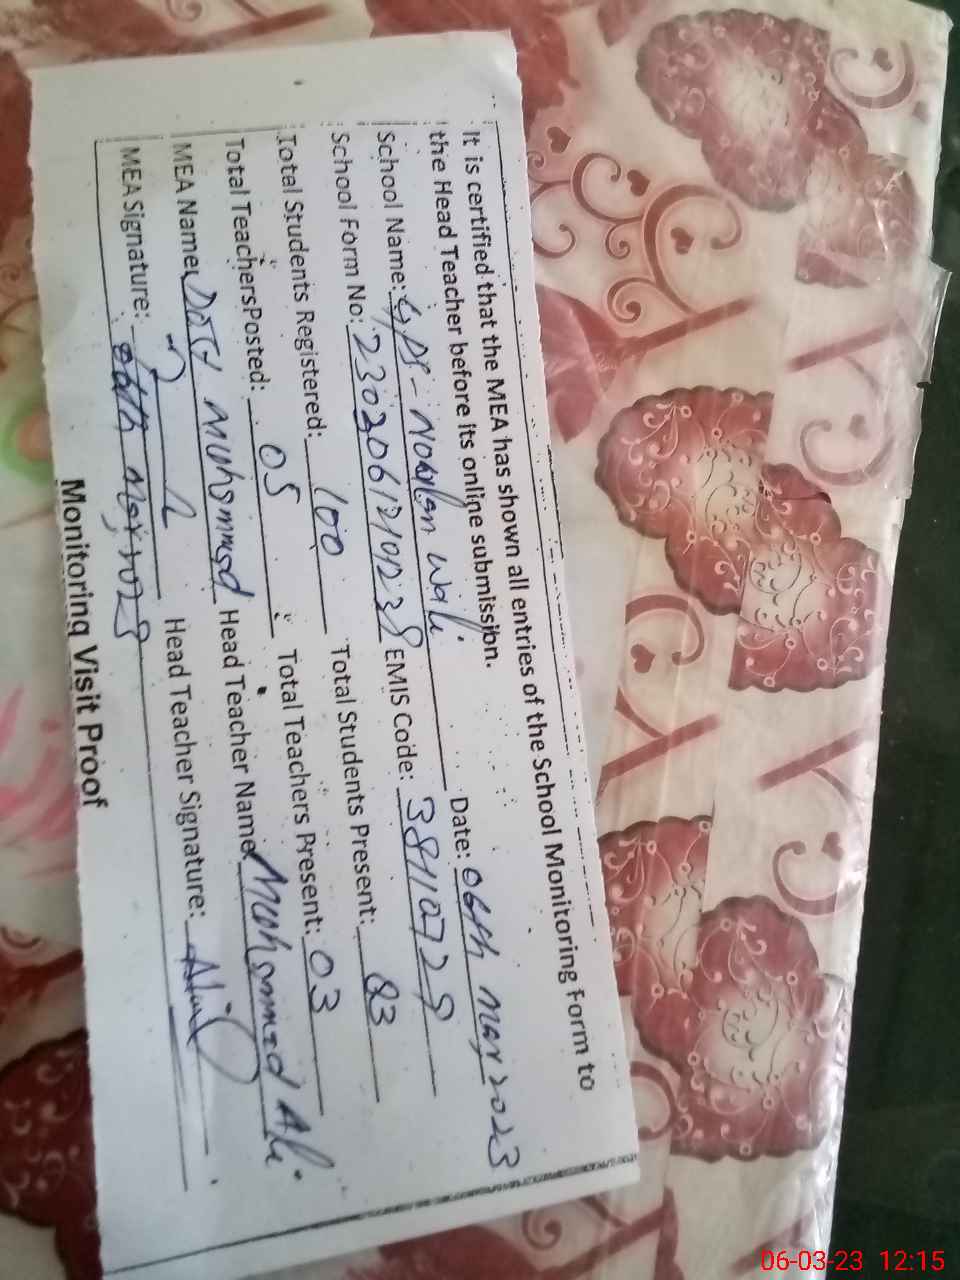 It is certified that the MEA has shown all entries of the School Monitoring Form to
the Head Teacher before its online submission.
School Name: GPS- Wali Date: 06th Mar 2023
School Form No: EMIS Code:
Total Students Registered: 100 Total Students Present: 83
Total Teachers Posted: 05 Total Teachers Present: 03
MEA Name: Dost Muhammad Head Teacher Name Muhammad Ali
MEA Signature: Head Teacher Signature:
Monitoring Visit Proof
06-03-23 12:15